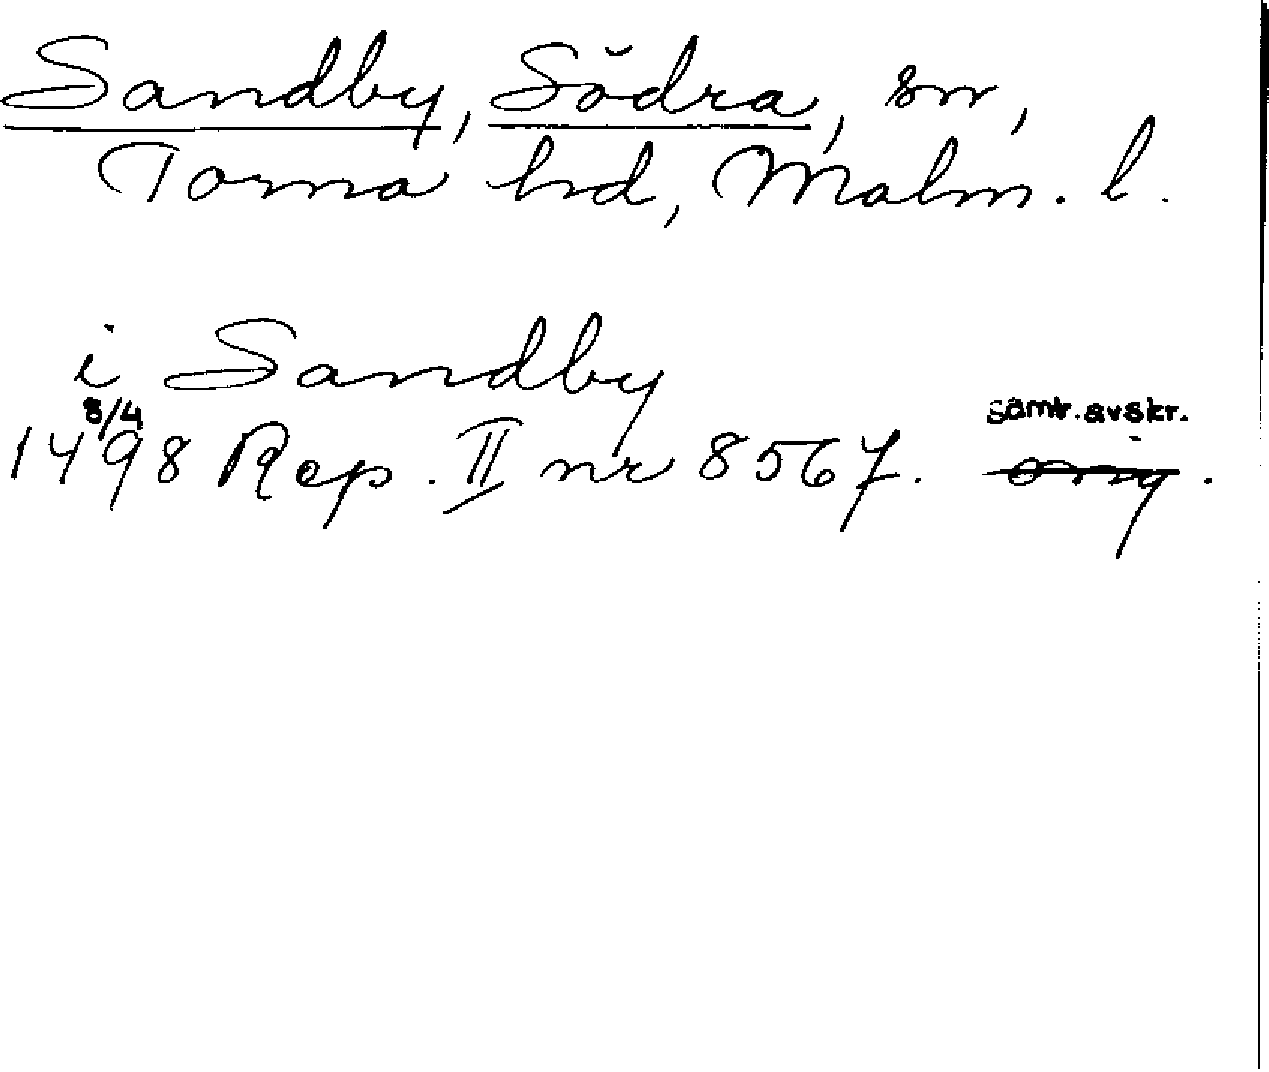 Sandby, Södra, sn,
Torna hd, Malm. l.
i Sandby
8/4 samt. avskr.
1498 Rep. II nr 8567. orig.